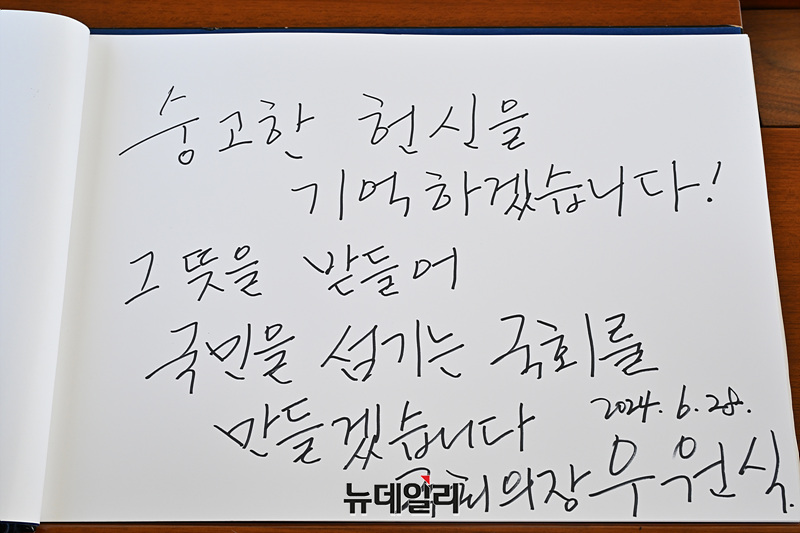 숭고한 헌신을
기억하겠습니다!
그 뜻을 받들어
국민을 섬기는 국회를
만들겠습니다
2024. 6. 28.
국회의장 우원식.
뉴데일리